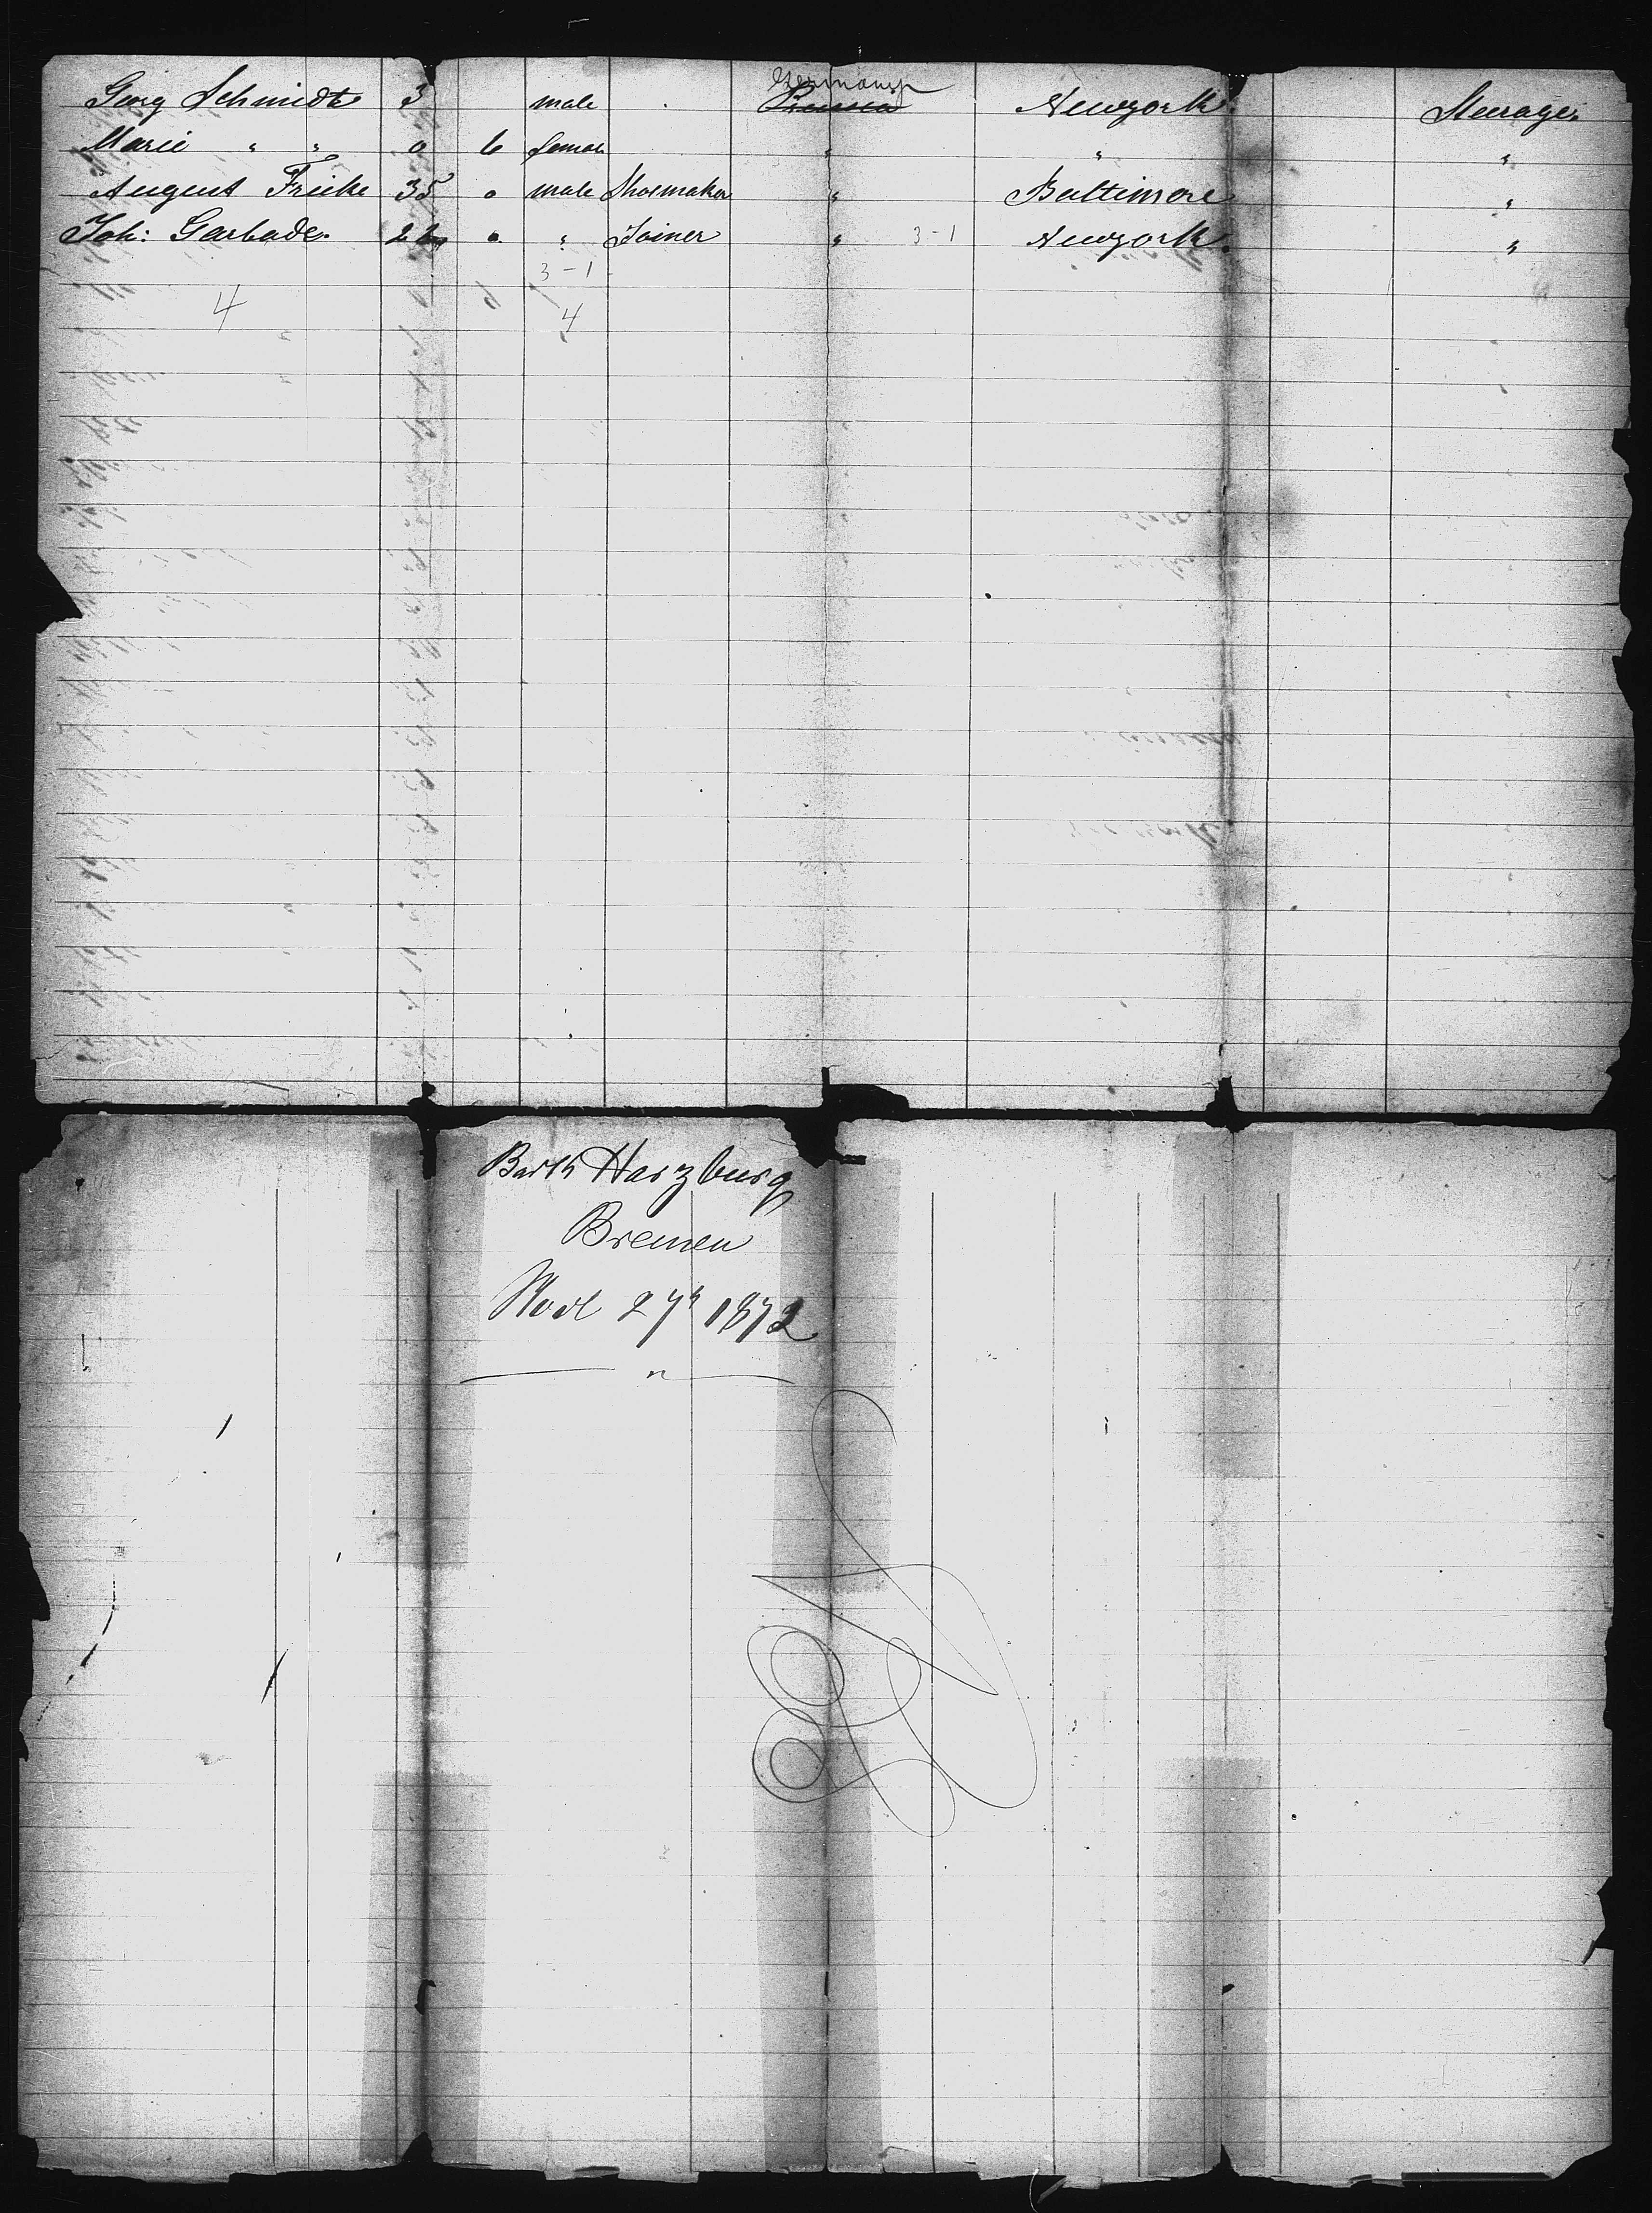 Germany
Georg Schmidt 3 male Prussia Newyork Steerage.
Marie " " 0 6 femal " " "
August Fricke 35 0 male Shoemaker " Baltimore "
Joh: Garbade. 26 0 " Joiner " 3-1 Newyork. "
3-1
4 4
Bark Harzburg
Bremen
Novt 27th 1872